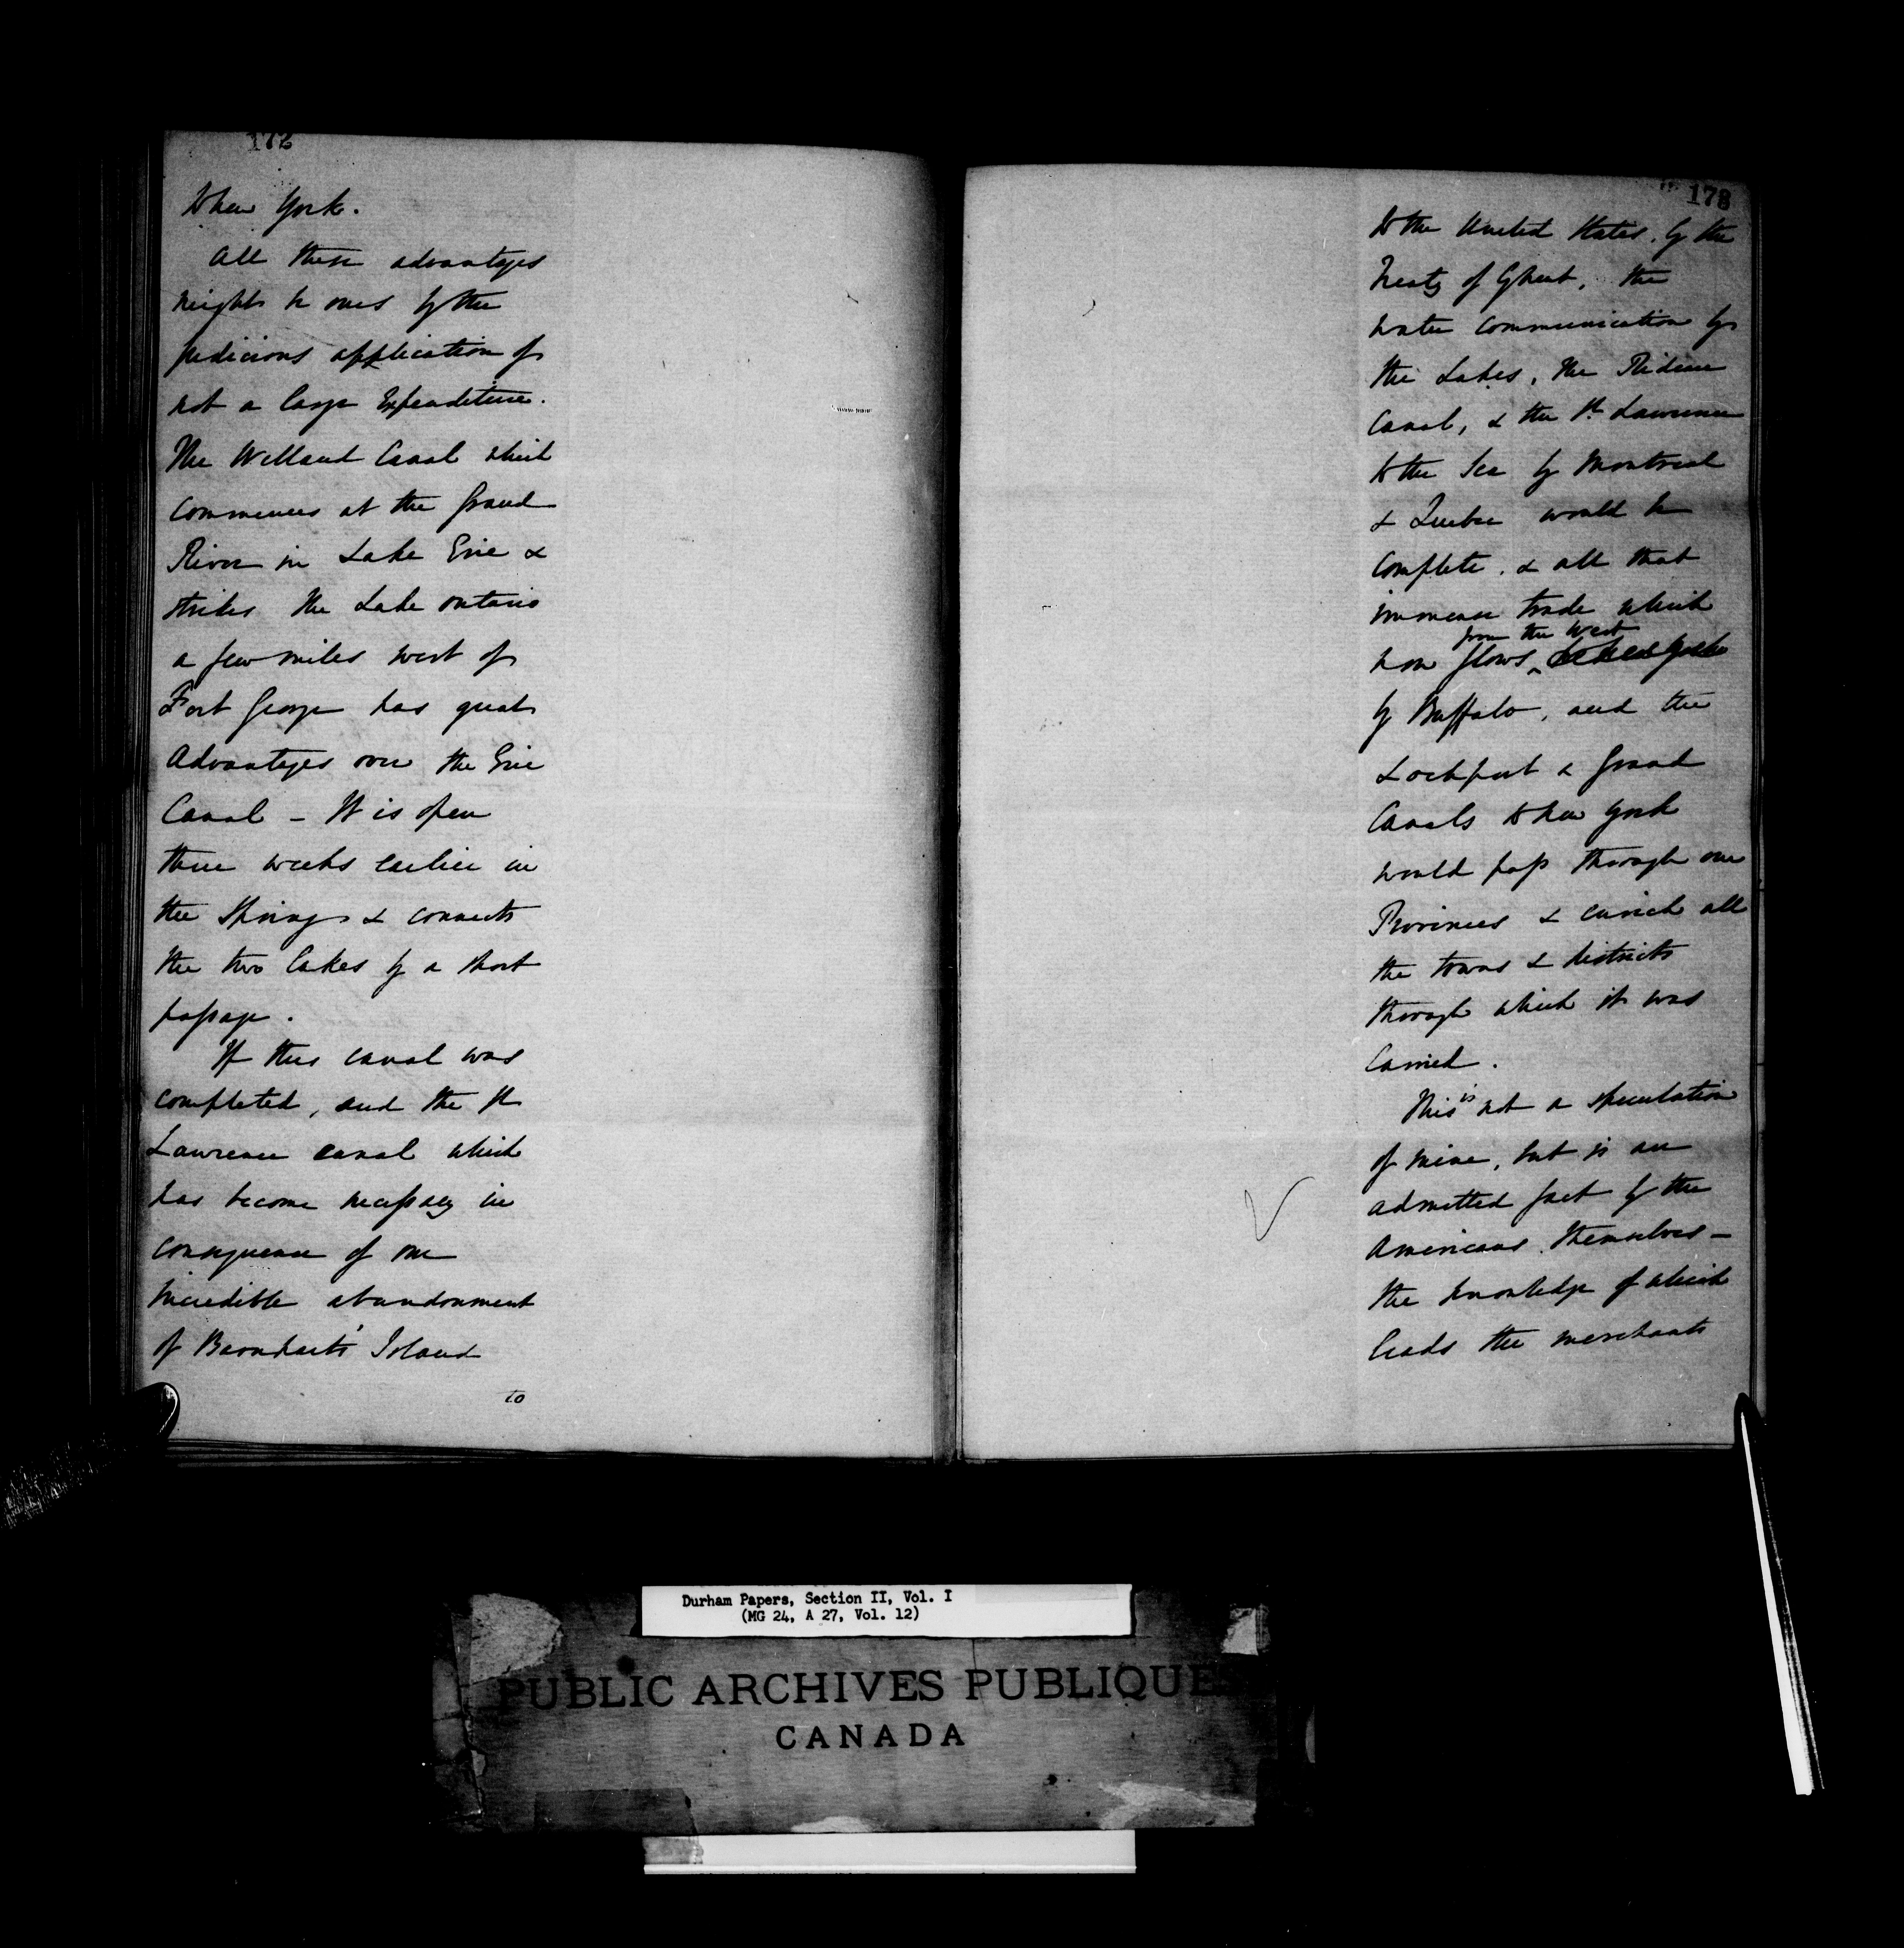 172
to New York.
All these advantages
might be ours by the
judicious application of
not a large Expenditure.
The Welland Canal which
commences at the Grand
River in Lake Erie &
strikes the Lake Ontario
a few miles west of
Fort George has great
Advantages over the Erie
Canal - It is open
three weeks earlier in
the Spring & connects
the two lakes by a short
passage.
If this canal was
completed, and the St
Lawrence canal which
has become necessary in
consequence of our
incredible abandonment
of Barnhart's Island
to
173
to the United States, by the
Treaty of Ghent, the
water communication by
the Lakes, the Rideau
Canal, & the St. Lawrence
to the Sea by Montreal
& Quebec would be
complete, & all that
immense trade which
from the West
now flows to New York
by Buffalo, and the
Lockport & Grand
Canals to New York
would pass through our
Provinces & enrich all
the towns & districts
through which it was
carried.
This is not a speculation
of mine, but is an
admitted fact by the
Americans themselves -
the knowledge of which
leads the merchants
Durham Papers, Section II, Vol. I
(MG 24, A 27, Vol. 12)
PUBLIC ARCHIVES PUBLIQUES
CANADA